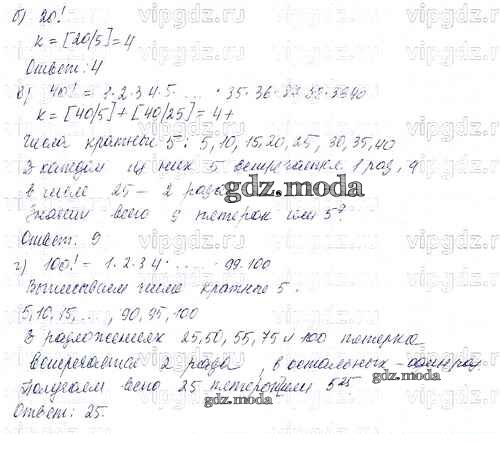 б) 20!
k = [20/5] = 4
Ответ: 4
в) 40! = 1·2·3 4·5· ... · 35·36· 39 40
k = [40/5] + [40/25] = 4+
Числа кратные 5: 5, 10, 15, 20, 25, 30, 35, 40
В каждом из них 5 встречается 1 раз, а
в числе 25 – 2 раза
gdz.moda
Значит всего 9 пятерок или 5⁹
Ответ: 9
г) 100! = 1·2·3 4· ... · 99·100
Выписываем числа кратные 5.
5, 10, 15, ..., 90, 95, 100
В разложениях 25, 50, 55, 75 и 100 пятерка
встречается 2 раза, в остальных – один раз
gdz.moda
Получаем всего 25 пятерок или 5²⁵
gdz.moda
Ответ: 25.
vipgdz.ru